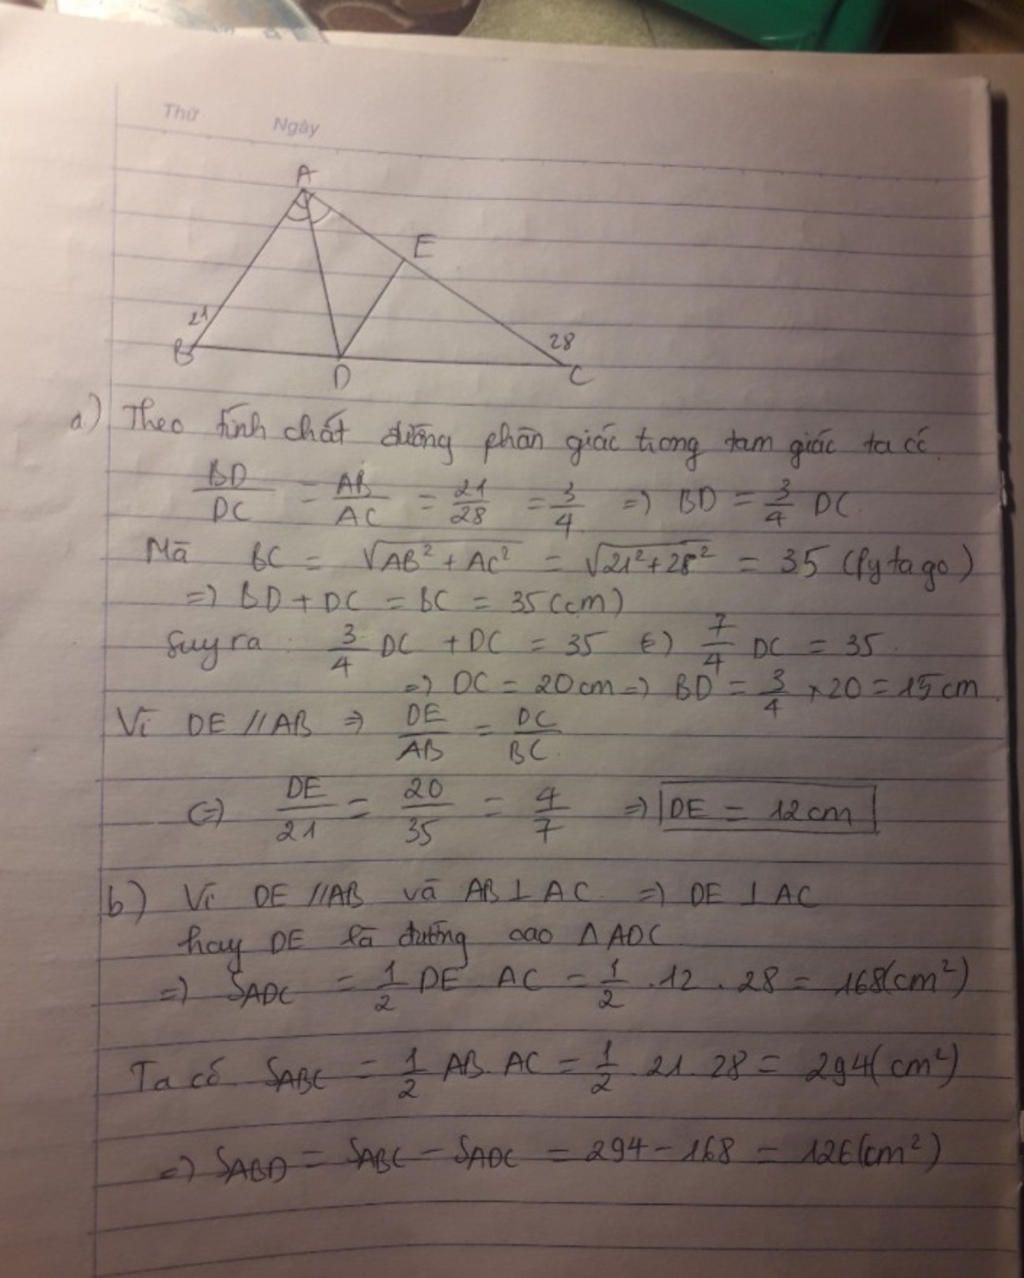 Thứ Ngày
A
E
21
28
B
D
C
a) Theo tính chất đường phân giác trong tam giác ta có
BD/DC = AB/AC = 21/28 = 3/4 => BD = 3/4 DC
Mà BC = √AB² + AC² = √21² + 28² = 35 (Pytago)
=> BD + DC = BC = 35 (cm)
Suy ra 3/4 DC + DC = 35 <=> 7/4 DC = 35
=> DC = 20 cm => BD = 3/4 × 20 = 15 cm
Vì DE // AB => DE/AB = DC/BC
<=> DE/21 = 20/35 = 4/7 => DE = 12 cm
b) Vì DE // AB và AB ⊥ AC => DE ⊥ AC
hay DE là đường cao Δ ADC
=> S_ADC = 1/2 DE AC = 1/2 . 12 . 28 = 168 (cm²)
Ta có S_ABC = 1/2 AB . AC = 1/2 . 21 . 28 = 294 (cm²)
=> S_ABD = S_ABC - S_ADC = 294 - 168 = 126 (cm²)